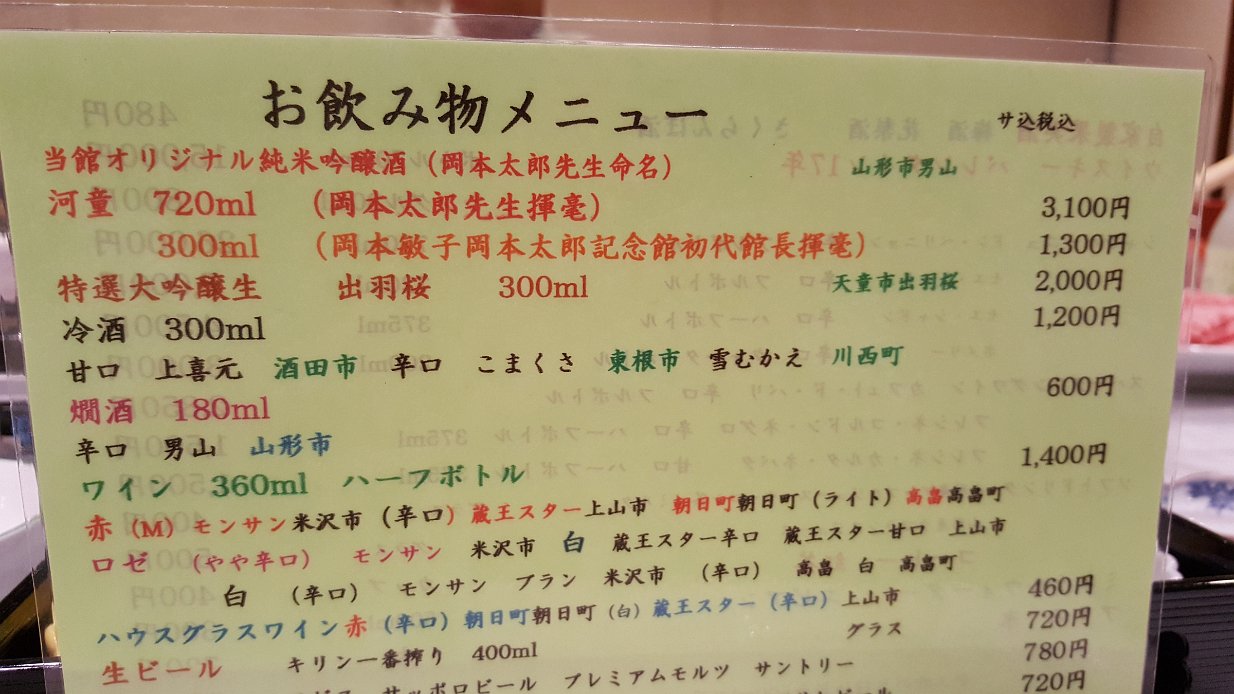 お飲み物メニュー サ込税込
当館オリジナル純米吟醸酒(岡本太郎先生命名) 山形市男山
河童 720ml (岡本太郎先生揮毫) 3,100円
300ml (岡本敏子岡本太郎記念館初代館長揮毫) 1,300円
特選大吟醸生 出羽桜 300ml 天童市出羽桜 2,000円
冷酒 300ml 1,200円
甘口 上喜元 酒田市 辛口 こまくさ 東根市 雪むかえ 川西町
燗酒 180ml 600円
辛口 男山 山形市
ワイン 360ml ハーフボトル 1,400円
赤(M)モンサン米沢市(辛口)蔵王スター上山市 朝日町朝日町(ライト)高畠高畠町
ロゼ (やや辛口) モンサン 米沢市 白 蔵王スター辛口 蔵王スター甘口 上山市
白 (辛口) モンサン ブラン 米沢市 (辛口) 高畠 白 高畠町
ハウスグラスワイン赤(辛口)朝日町朝日町(白)蔵王スター(辛口)上山市 460円
生ビール キリン一番搾り 400ml グラス 720円
サッポロビール プレミアムモルツ サントリー 780円
720円